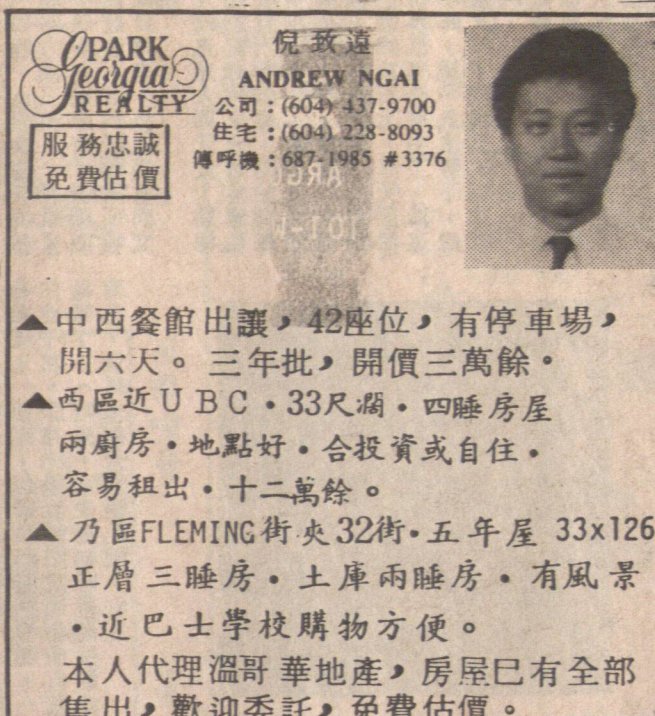 PARK
Georgia
REALTY
服務忠誠
免費估價
倪致遠
ANDREW NGAI
公司：(604) 437-9700
住宅：(604) 228-8093
傳呼機：687-1985 #3376
▲中西餐館出讓，42座位，有停車場，
開六天。三年批，開價三萬餘。
▲西區近UBC・33尺濶・四睡房屋
兩廚房・地點好・合投資或自住・
容易租出・十二萬餘。
▲乃區FLEMING街夾32街・五年屋 33x126
正層三睡房・土庫兩睡房・有風景
・近巴士學校購物方便。
本人代理溫哥華地產，房屋巳有全部
售出，歡迎委託，免費估價。